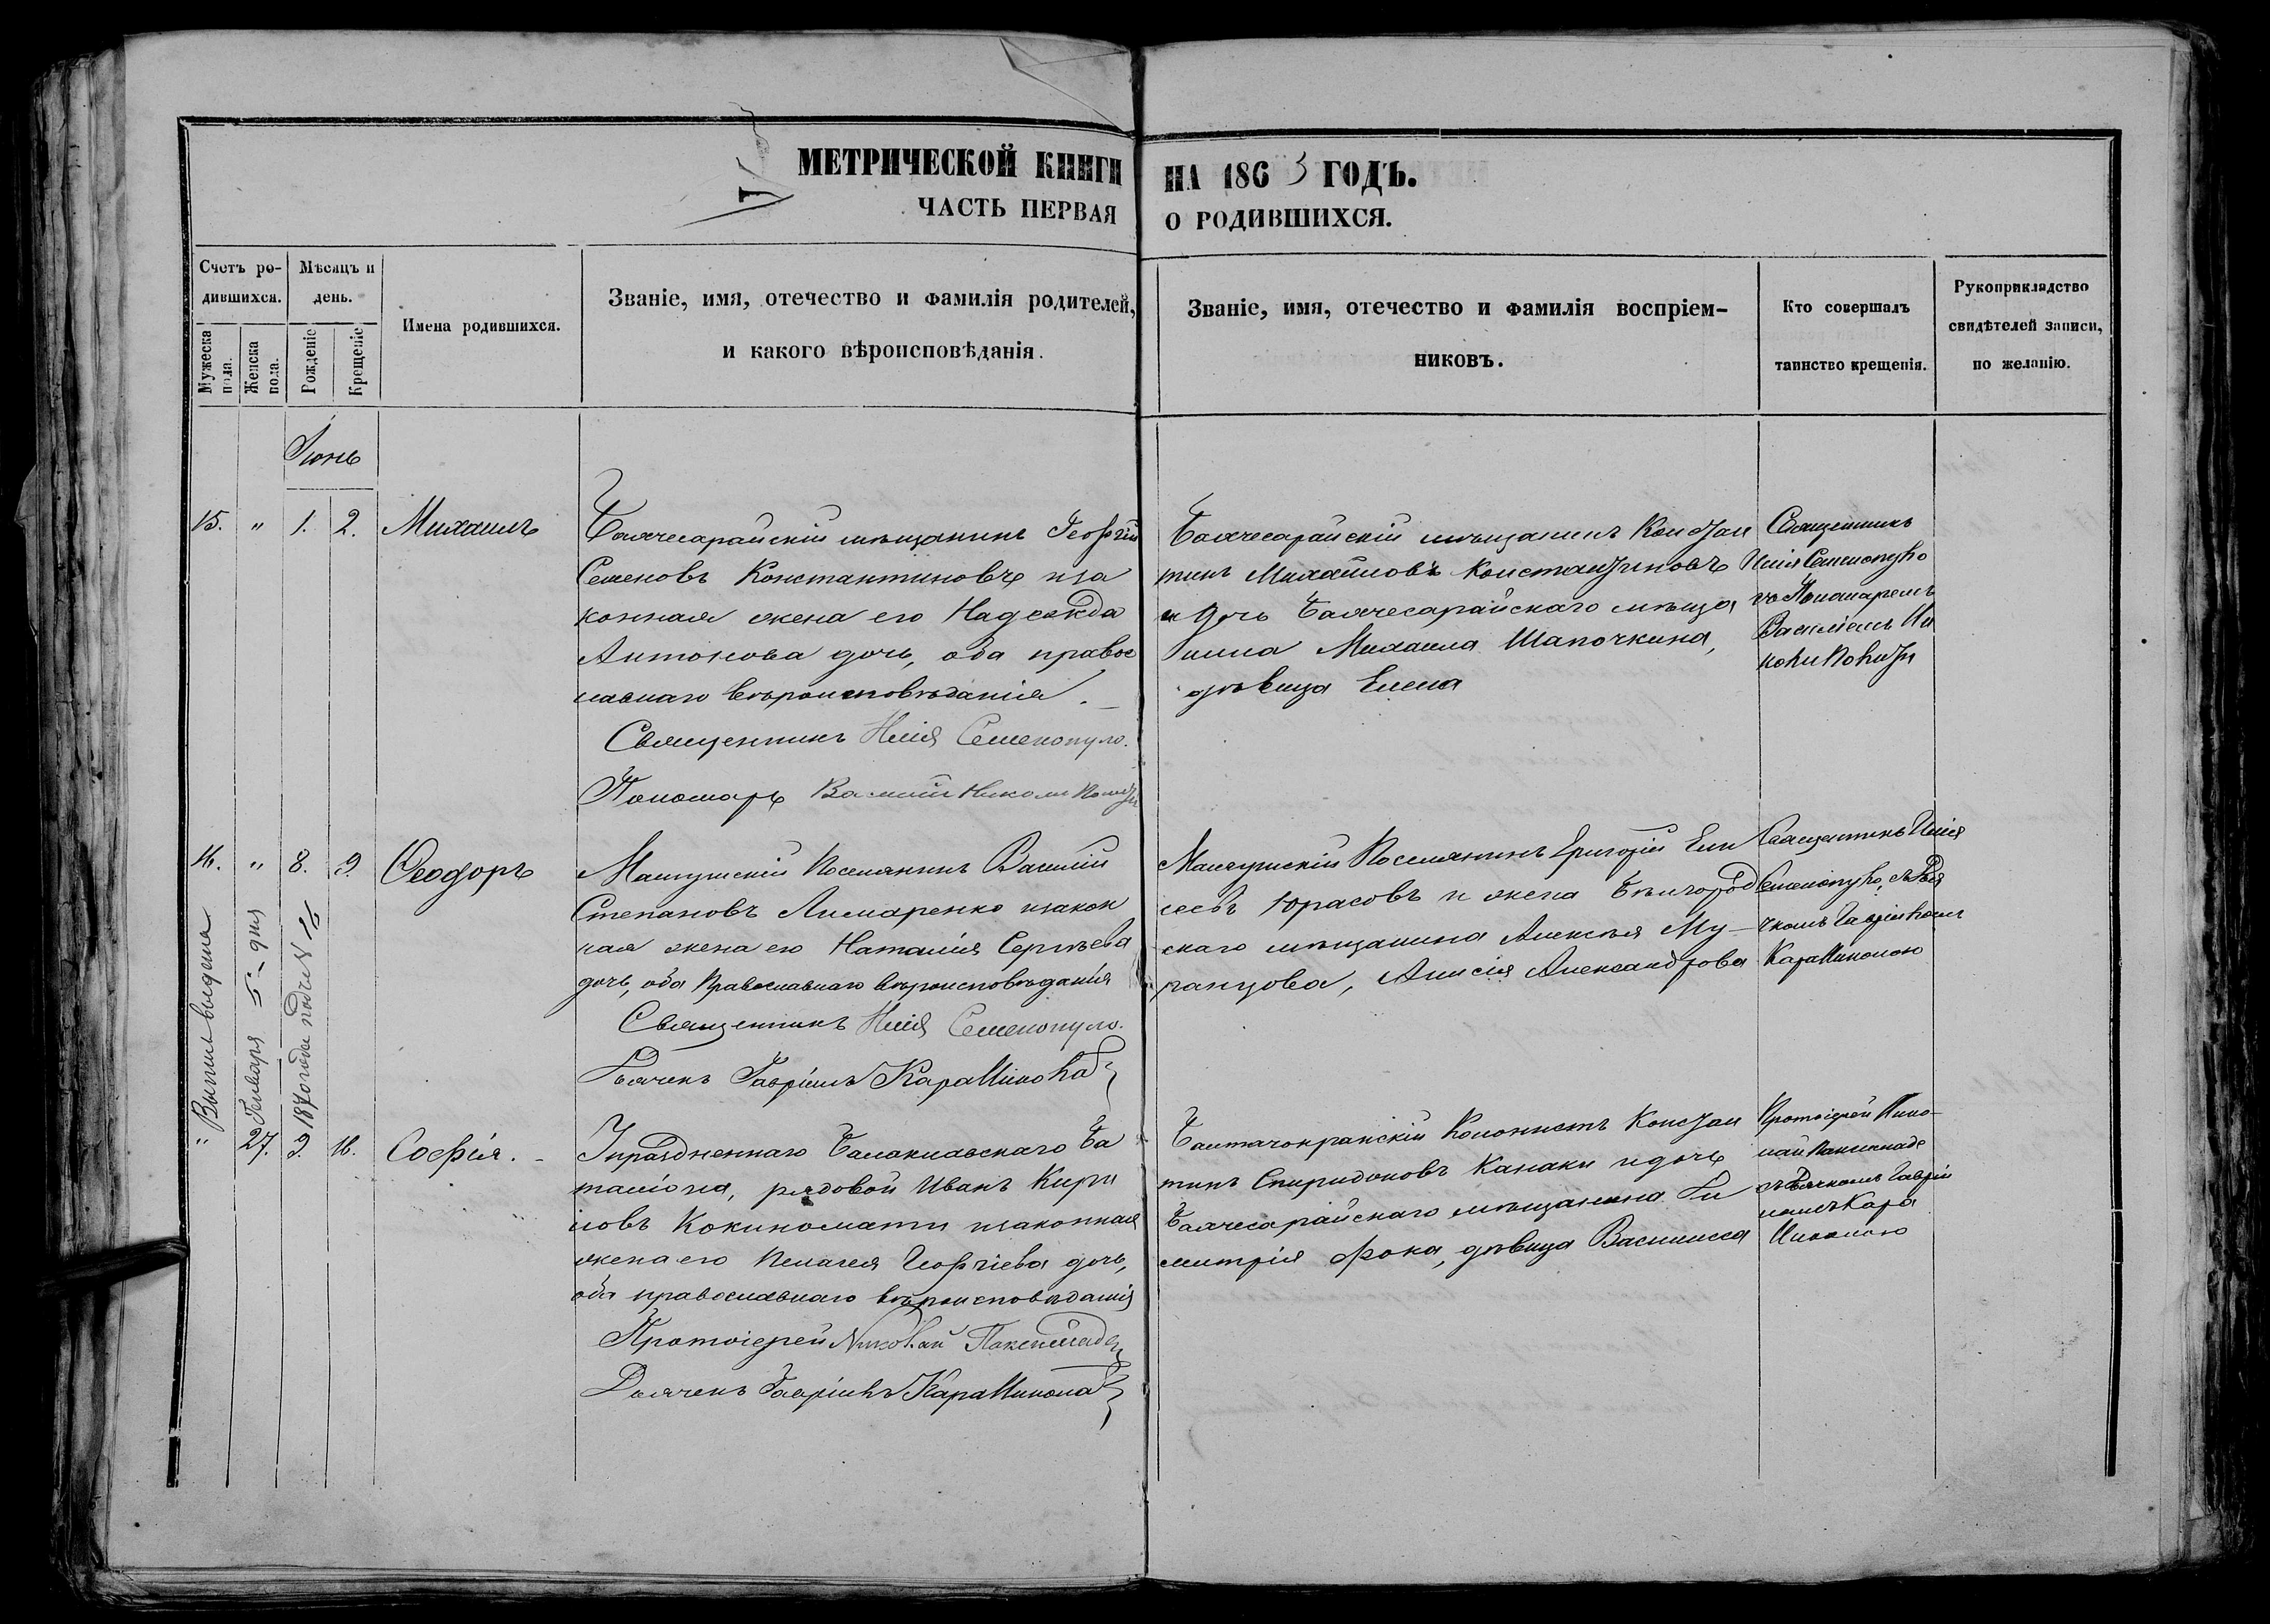 МЕТРИЧЕСКОЙ КНИГИ НА 1863 ГОДЪ.
ЧАСТЬ ПЕРВАЯ О РОДИВШИХСЯ.
Счетъ ро-
дившихся.
Мужеска пола.
Женска пола.
Мѣсяцъ и
день.
Рожденіе
Крещеніе
Имена родившихся.
Званіе, имя, отечество и фамилія родителей,
и какого вѣроисповѣданія.
Званіе, имя, отечество и фамилія воспріем-
никовъ.
Кто совершалъ
таинство крещенія.
Рукоприкладство
свидѣтелей записи,
по желанію.
Іюнь
15. " 1. 2. Михаилъ
Бахчесарайскій мѣщанинъ Георгій
Семеновъ Константиновъ иза
конная жена его Надежда
Антонова дочь, оба правос
лавнаго вѣроисповѣданія.
Священникъ Илія Семенопуло.
Пономарь Василій Николи
Бахчесарайскій мѣщанинъ Констан
тинъ Михайловъ Константиновъ
и дочь Бахчесарайскаго мѣща
нина Михаила Шапочкина,
дѣвица Елена
Священникъ
Илія Семенопуло
съ Пономаремъ
Василіемъ Ни
16. " 8. 9. Ѳеодоръ
Мангушскій Поселянинъ Василій
Степановъ Лимаренко изакон
ная жена его Наталія Сергѣева
дочь, оба Православнаго вѣроисповѣданія
Священникъ Илія Семенопуло.
Дьячекъ Гавріилъ КараНикола
Мангушскій Поселянинъ Григорій Ели
сеевъ Юрасовъ и жена Бѣлгород
скаго мѣщанина Алексѣя Му-
ранцова, Анисія Александрова
Священникъ Илія
Семенопуло, съ Дья
чкомъ Гавріиломъ
КараНиколою
Выпись выдена
Генваря 5-дня
1870 года подъ №
" 27. 9. 16. Софія.
Упраздненнаго Балаклавскаго Ба
таліона, рядовой Иванъ Кири
ловъ Кокиномати изаконная
жена его Пелагея Георгіева дочь,
оба православнаго вѣроисповѣданія
Протоіерей Николай Паксимаде
Дьячекъ Гавріилъ КараНикола
Балтачокракскій Колонистъ Констан
тинъ Спиридоновъ Канаки идочь
Бахчесарайскаго мѣщанина Ди
митрія Фока, дѣвица Василисса
Протоіерей Нико-
лай Паксимаде
съ Дьячкомъ Гаврі
иломъ Кара
Николою